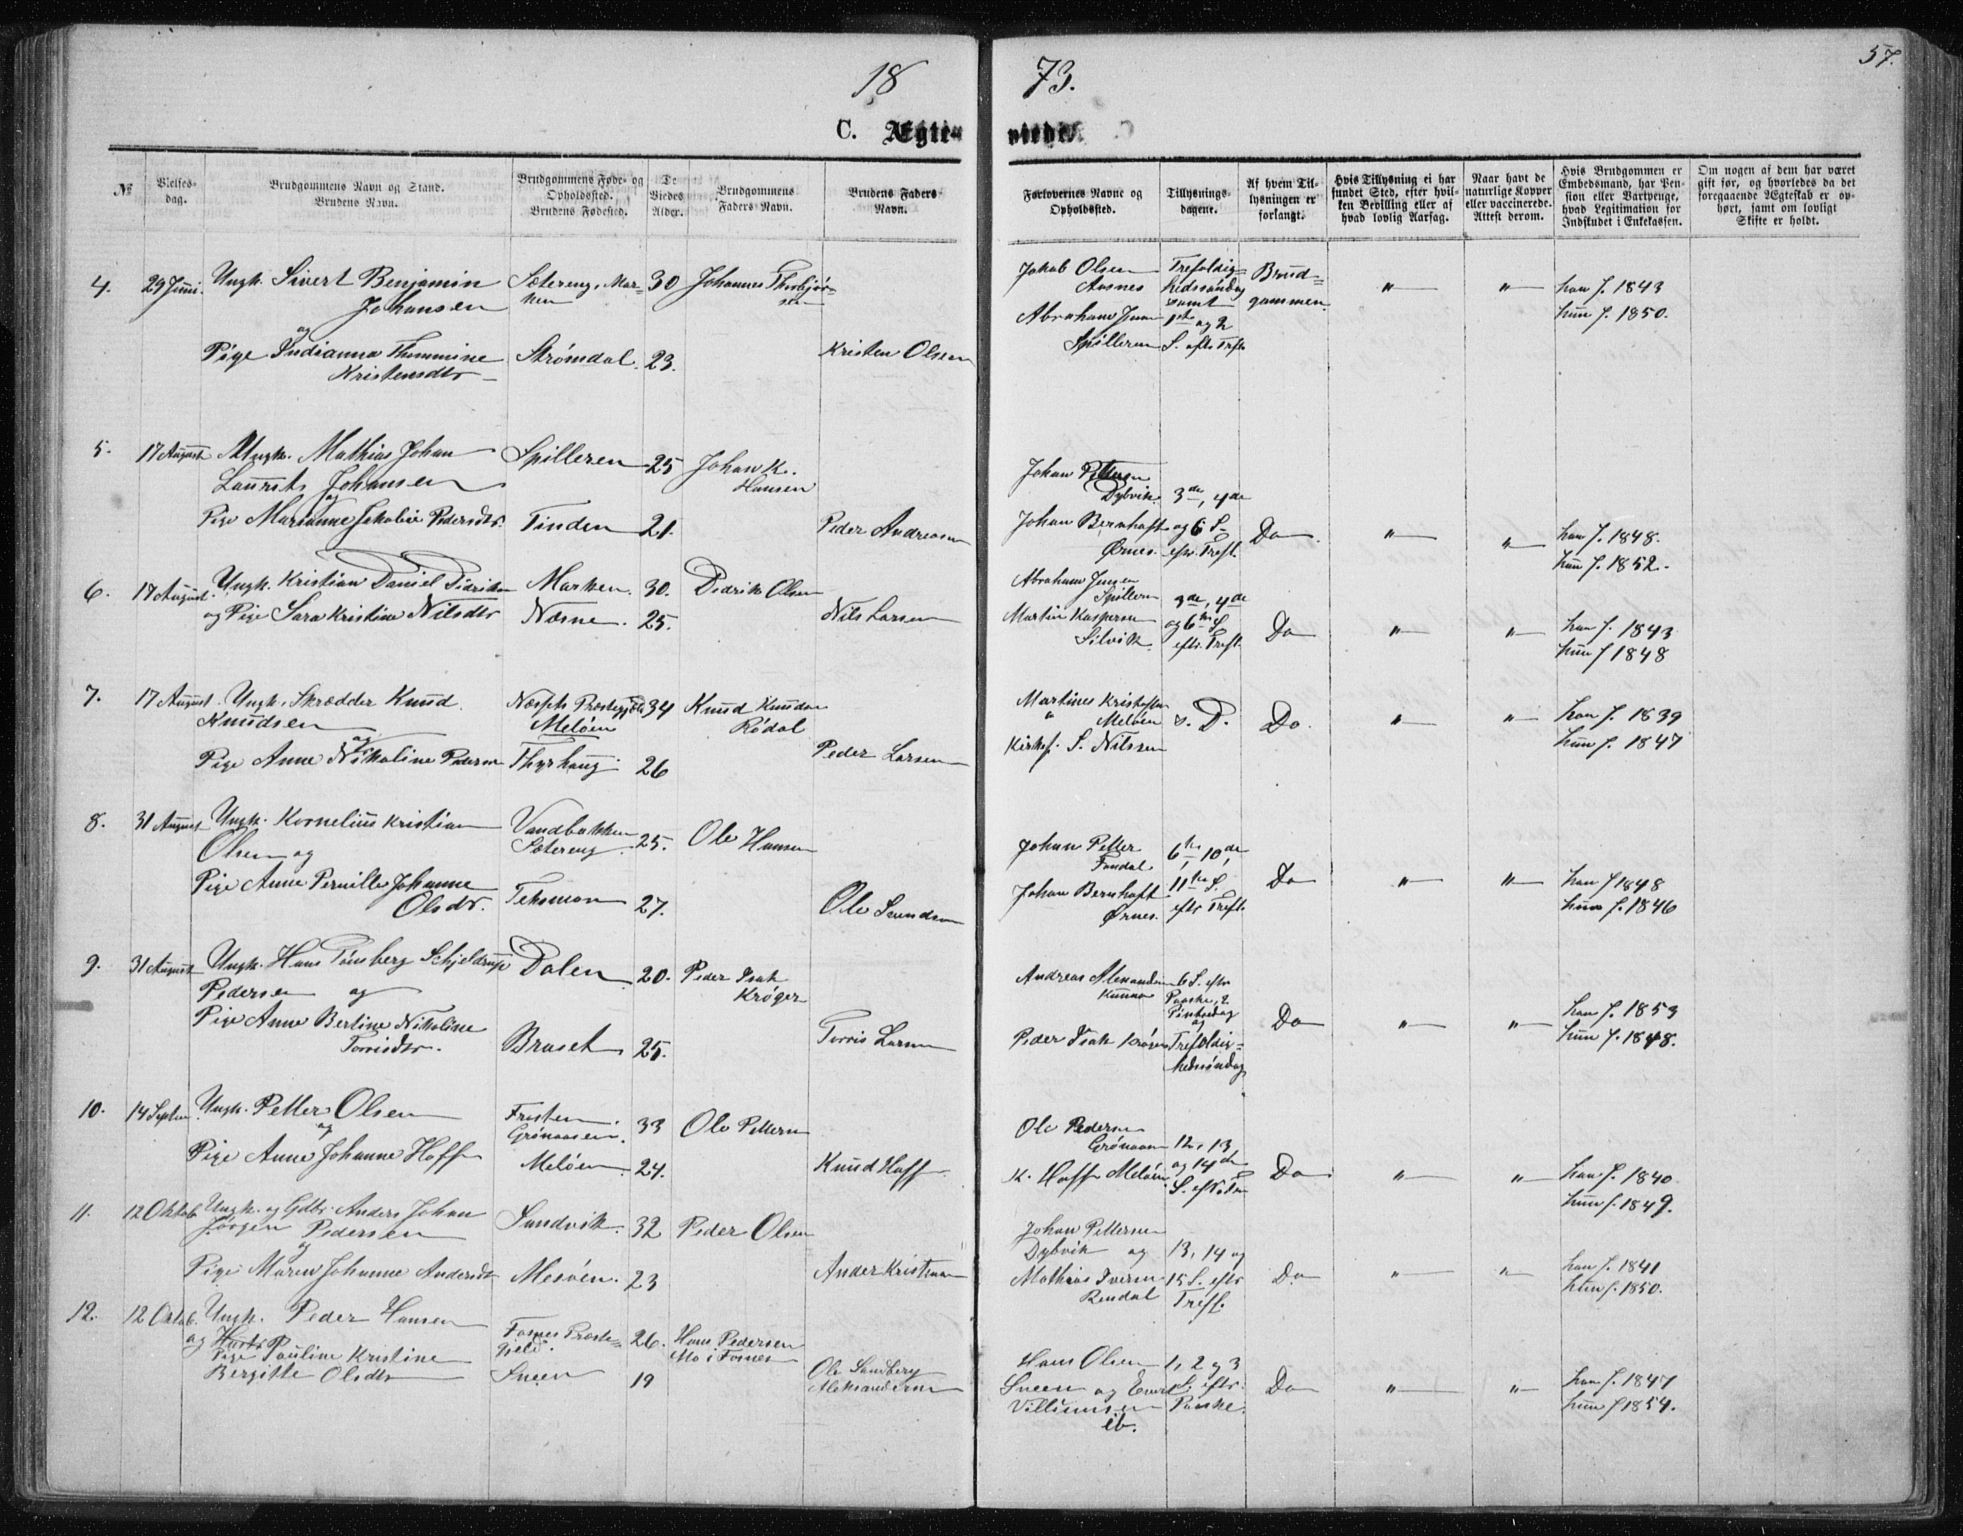 18 73.
57.
C. Ægte- viede.
№
Vielses-
dag.
Brudgommens Navn og Stand.
Brudens Navn.
Brudgommens Føde- og
Opholdssted.
Brudens Fødested.
De
Viedes
Alder.
Brudgommens
Faders Navn.
Brudens Faders
Navn.
Forlovernes Navne og
Opholdssted.
Tillysnings-
dagene.
Af hvem Til-
lysningen er
forlangt.
Hvis Tillysning ei har
fundet Sted, efter hvil-
ken Bevilling eller af
hvad lovlig Aarsag.
Naar havt de
naturlige Kopper
eller vaccinerede.
Attest derom.
Hvis Brudgommen er
Embedsmand, har Pen-
sion eller Vartpenge,
hvad Legitimation for
Indskudet i Enkekassen.
Om nogen af dem har været
gift før, og hvorledes da det
foregaaende Ægteskab er op-
hørt, samt om lovligt
Skifte er holdt.
4. 29 Juni. Ungk. Sivert Benjamin
Johansen
Sætereng, Mar-
ken
30 Johannes Thorbjør-
sen
og
Pige Indianna Thommine
Kristensdtr
Strømdal. 23. Kristen Olsen
Jakob Olsen
Aasnes
Abraham Jensen
Spilleren
Trefoldig-
hedssøndag
samt
1ste og 2
S. eftr Trft
Brud-
gommen
" " han f. 1843
hun f. 1850.
5. 17 August Ungk. Mathias Johan
Laurits Johansen
Spilleren 25 Johan K.
Hansen
og
Pige Marianne Jakobie Pedersdtr. Tinden 21. Peder Andreasen
Johan Pettersen
Dybvik.
Johan Bernhoft
Ørnes.
3de, 4de
og 6 S.
eftr. Treft.
Do " " han f. 1848.
hun f. 1852.
6. 17 August. Ungk. Kristian Daniel Didriksen Marken. 30. Didrik Olsen
og Pige Sara Kristine Nilsdtr Næsne. 25. Nils Larsen
Abraham Jensen
Spilleren
Martin Kaspersen
Silvik.
3de, 4de
og 6te S.
eftr. Treft.
Do " " han f. 1843
hun f 1848
7. 17 August. Ungk. Skrædder Knud
Knudsen
Næssets Præstegjeld
Meløen
34 Knud Knudsen
Rødal
og
Pige Anne Nikoline Pedersen Thyrhaug 26 Peder Larsen
Martines Kristofersen
" Meløen
Kirkes. S. Nilssen
s. D. Do. " " han f. 1839
hun f. 1847
8. 31 August Ungk. Kornelius Kristian
Olsen og
Vandbakken
Sætereng 25. Ole Hansen
Pige Anne Pernille Johanne
Olsdtr.
Teksmon 27. Ole Svendsen
Johan Petter
Fondal
Johan Bernhoft
Ørnes.
6te, 10de,
11te S.
eftr Treft.
Do " " han f 1848
hun f. 1846
9. 31 August Ungk. Hans Tønsberg Schjeldrup
Pedersen og
Dalen 20. Peder Isak
Krøger
Pige Anne Bertine Nikoline
Torrisdtr.
Braset 25. Torris Larsen
Andreas Alexandersen
Kunna
Peder Isak Krøger
6 S. eftr
Paaske, 2.
Pintsedag
og
Trefoldig-
hedssøndag
Do " " han f. 1853
hun f. 1848.
10. 14 Septbr. Ungk. Petter Olsen Fristen
Grønaasen. 33 Ole Pettersen
og
Pige Anne Johanne Hoff Meløen 24. Knud Hoff
Ole Pedersen
Grønaasen
K. Hoff Meløen.
12, 13
og 14de
S. eft Tref
Do " " han f. 1840
hun f. 1849.
11. 12 Oktob. Ungk. og Gdbr. Anders Johan
Jørgen Pedersen
Sandvik. 32 Peder Olsen
og
Pige Maren Johanne Andersdtr Mesøen. 23 Ander Kristian
Johan Pettersen
Dybvik og
Mathias Iversen
Bendal
13, 14 og
15 S. eftr
Treft.
Do " " han f. 1841
hun f. 1850.
12. 12 Oktob. Ungk. Peder Hansen
Fosnes Præste-
gjeld. 26. Hans Pedersen
Mo i Fosnes
og
Pige Pauline Kristine
Bergitte Olsdtr Sneen 19 Ole Sandberg
Aleksandersen
Hans Olsen
Sneen og Evert
Villumsen
ib.
1, 2 og 3
S. eftr.
Paaske.
Do " " han f. 1847
hun f 1854.